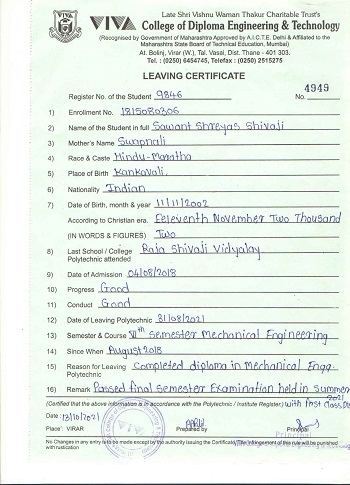 Late Shri Vishnu Waman Thakur Charitable Trust's
VIVA VIVA College of Diploma Engineering & Technology
(Recognised by Government of Maharashtra Approved by A.I.C.T.E. Delhi & Affiliated to the
Maharashtra State Board of Technical Education, Mumbai)
At. Bolinj, Virar (W.), Tal. Vasai, Dist. Thane - 401 303.
Tel. : (0250) 6454745, Telefax : (0250) 2515275
LEAVING CERTIFICATE
Register No. of the Student 9846 No. 4949
1) Enrollment No. 1815080306
2) Name of the Student in full Sawant Shreyas Shivaji
3) Mother's Name Swapnali
4) Race & Caste Hindu-Maratha
5) Place of Birth Kankavali.
6) Nationality Indian
7) Date of Birth, month & year 11/11/2002
According to Christian era. Eeleventh November Two Thousand
(IN WORDS & FIGURES) Two
8) Last School / College Raja Shivaji Vidyalay
Polytechnic attended
9) Date of Admission 04/08/2018
10) Progress Good
11) Conduct Good
12) Date of Leaving Polytechnic 31/08/2021
13) Semester & Course VIth Semester Mechanical Engineering
14) Since When August 2018
15) Reason for Leaving Completed diploma in Mechanical Engg.
Polytechnic
16) Remark Passed final semester Examination held in Summer
2021
(Certified that the above information is in accordance with the Polytechnic / Institute Register) with First Class
Date : 13/10/2021
Place : VIRAR Prepared by Principal
Principal
No Changes in any entry is to be made except by the authority issuing the Certificate. The infringement of this rule will be punished
with rustication